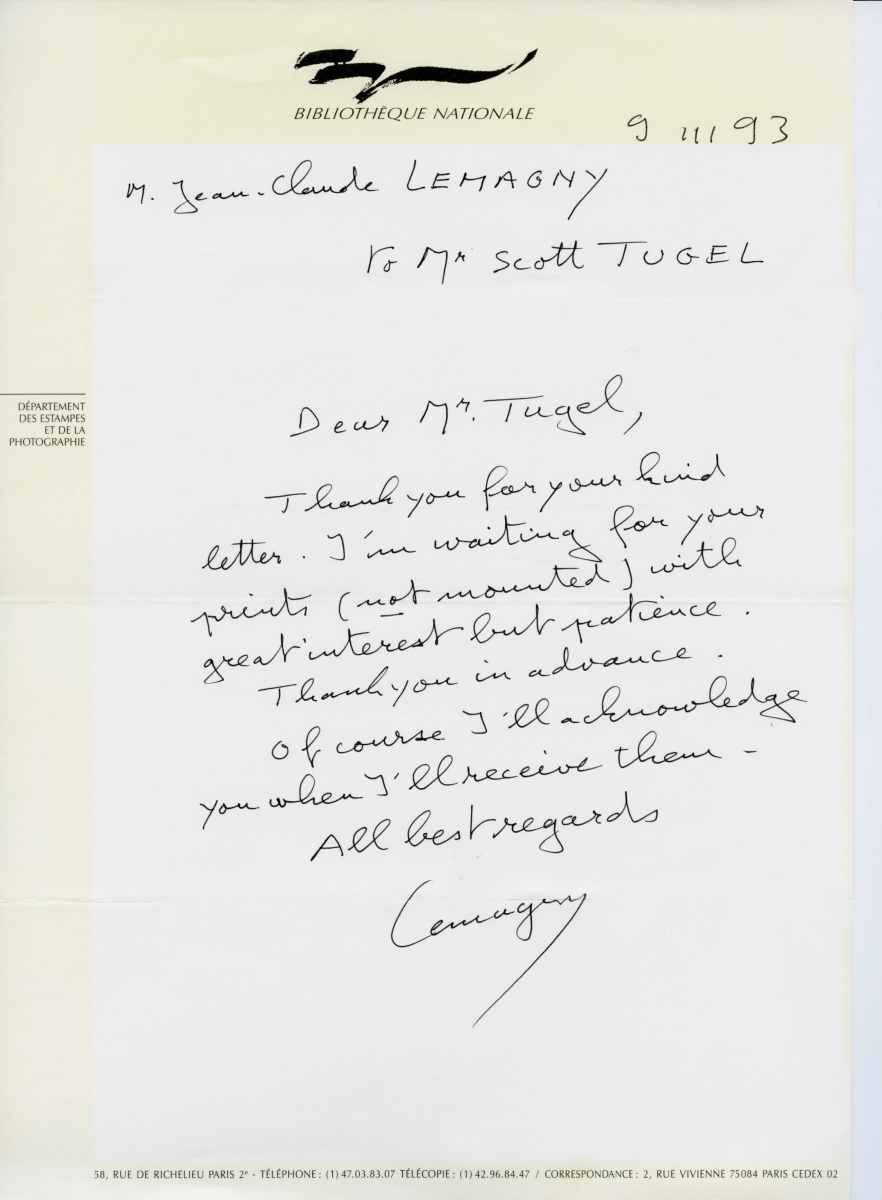 BIBLIOTHÈQUE NATIONALE
9 III 93
M. Jean-Claude LEMAGNY
to Mr Scott TUGEL
DÉPARTEMENT
DES ESTAMPES
ET DE LA
PHOTOGRAPHIE
Dear Mr. Tugel,
Thank you for your kind
letter. I'm waiting for your
prints (not mounted) with
great interest but patience.
Thank you in advance.
Of course I'll acknowledge
you when I'll receive them -
All best regards
Lemagny
58, RUE DE RICHELIEU PARIS 2e - TÉLÉPHONE : (1) 47.03.83.07 TÉLÉCOPIE : (1) 42.96.84.47 / CORRESPONDANCE : 2, RUE VIVIENNE 75084 PARIS CEDEX 02